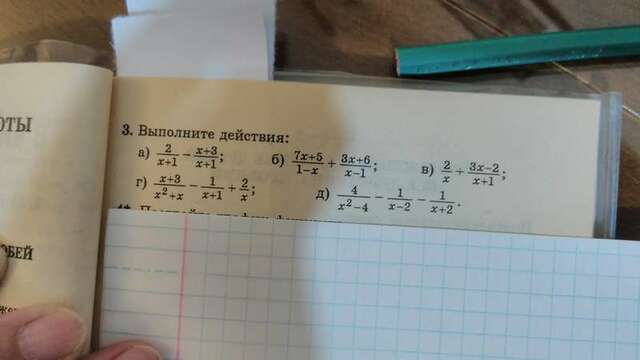 ОТЫ
ОБЕЙ
3. Выполните действия:
а) 2/(x+1) − (x+3)/(x+1); б) (7x+5)/(1−x) + (3x+6)/(x−1); в) 2/x + (3x−2)/(x+1);
г) (x+3)/(x²+x) − 1/(x+1) + 2/x; д) 4/(x²−4) − 1/(x−2) − 1/(x+2).